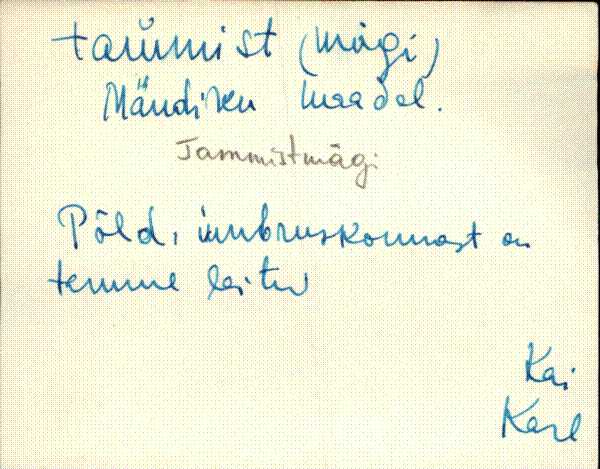 tam̀mist (mägi)
Mändiku maadel.
Tammistmägi
Põld, ümbruskonnast on
tamme leitud
Kai
Karl